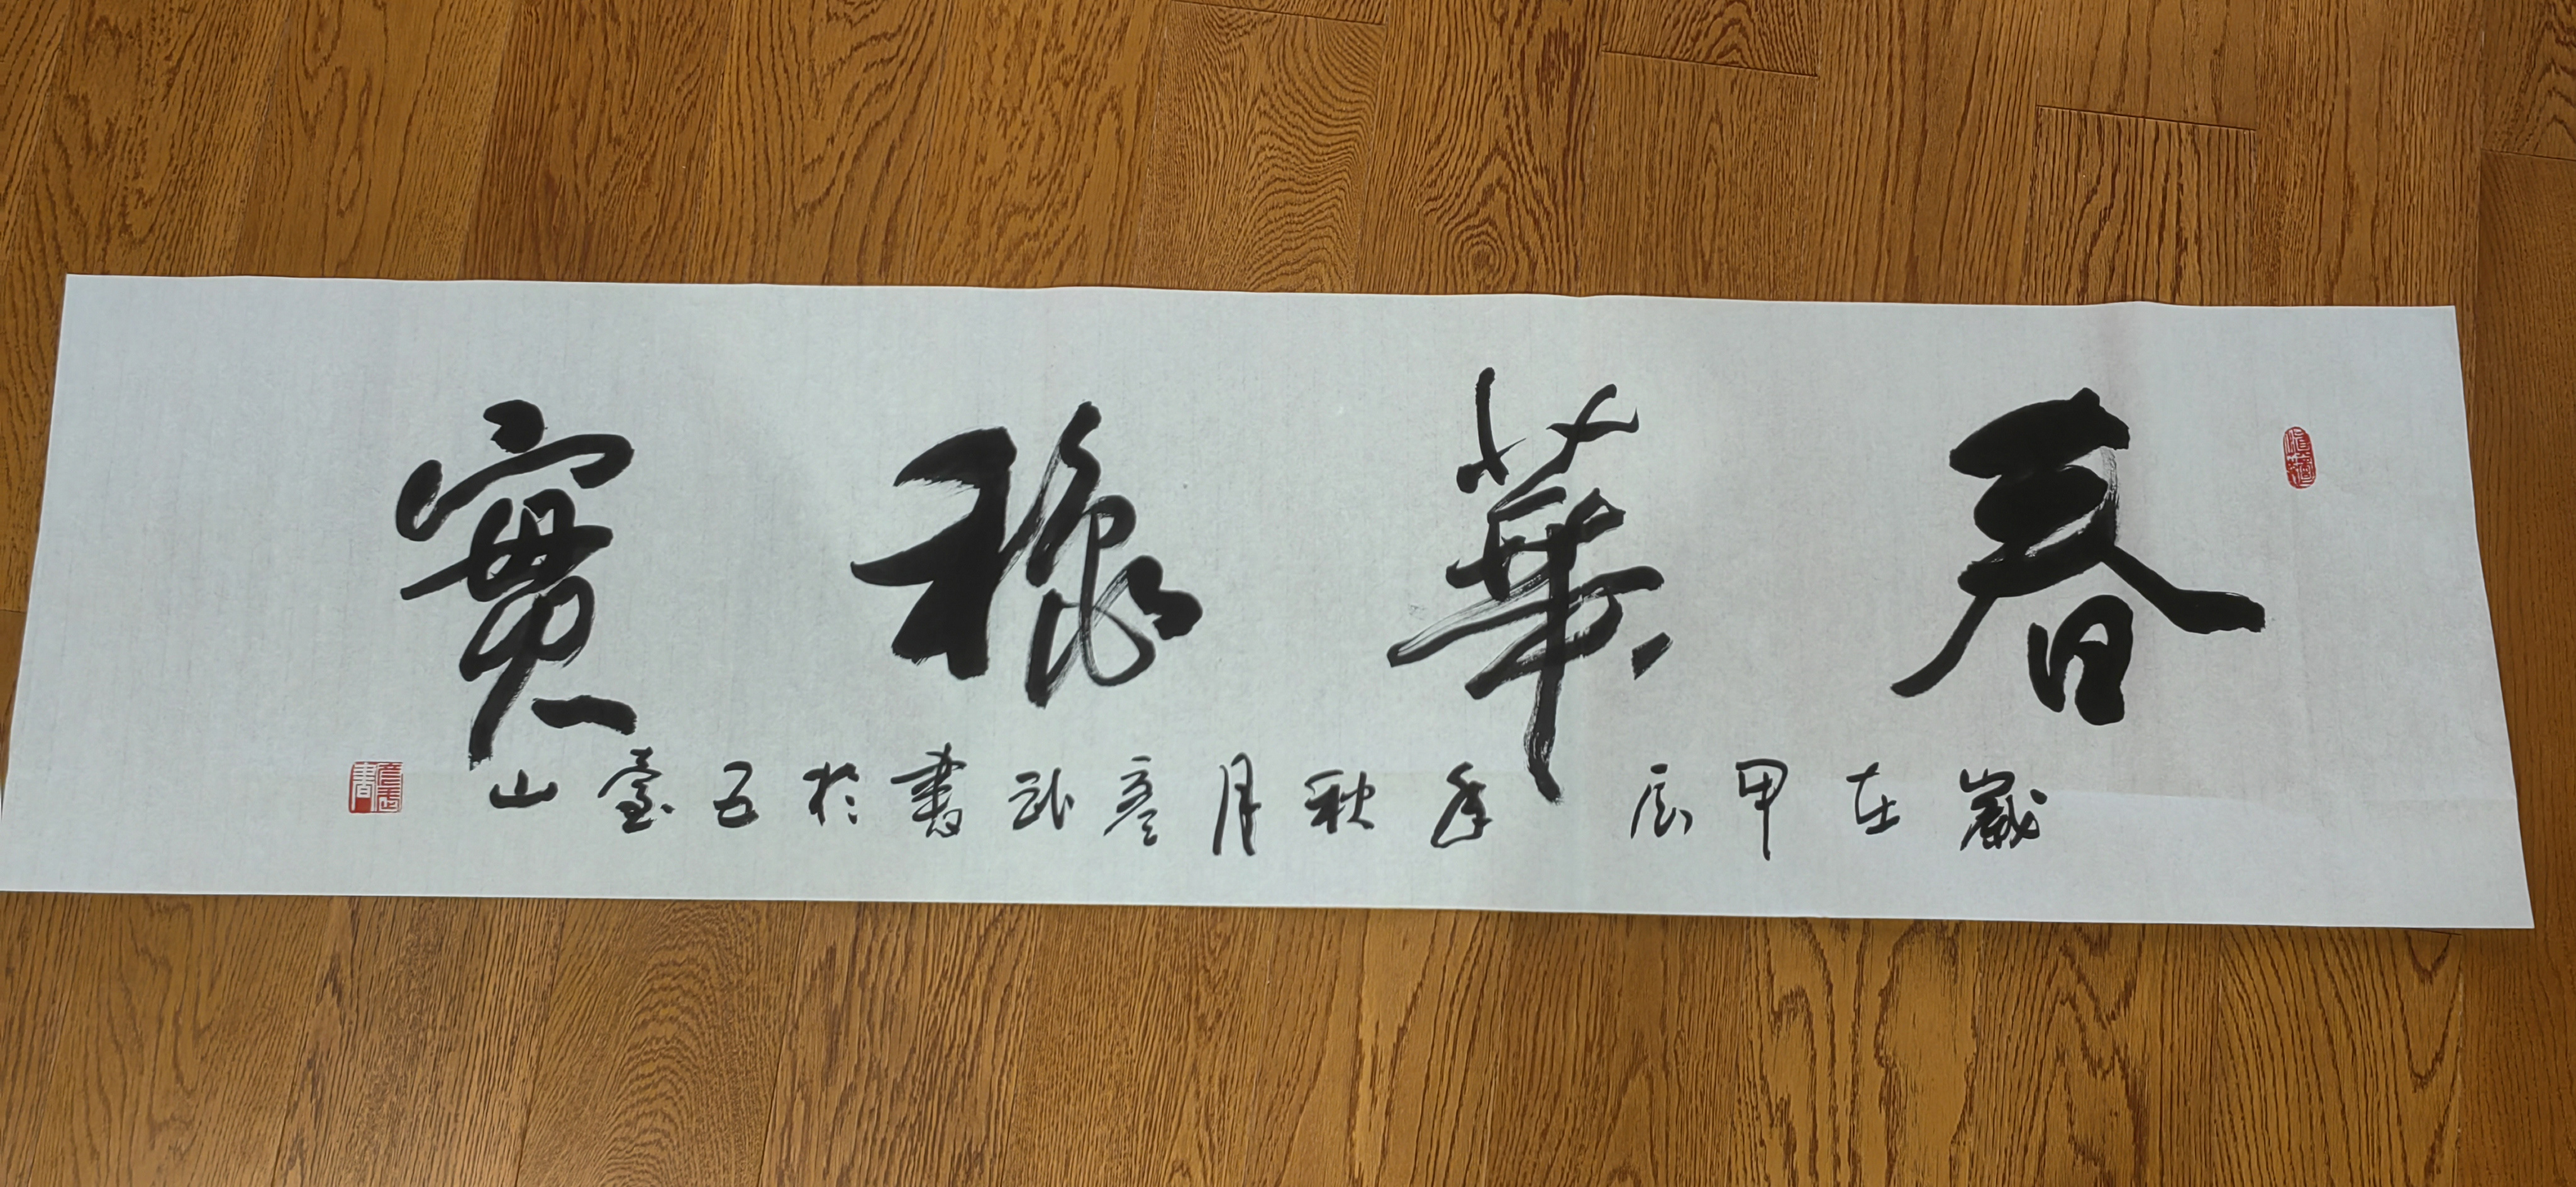 春華秋實
歲在甲辰年秋月彦武書於五臺山